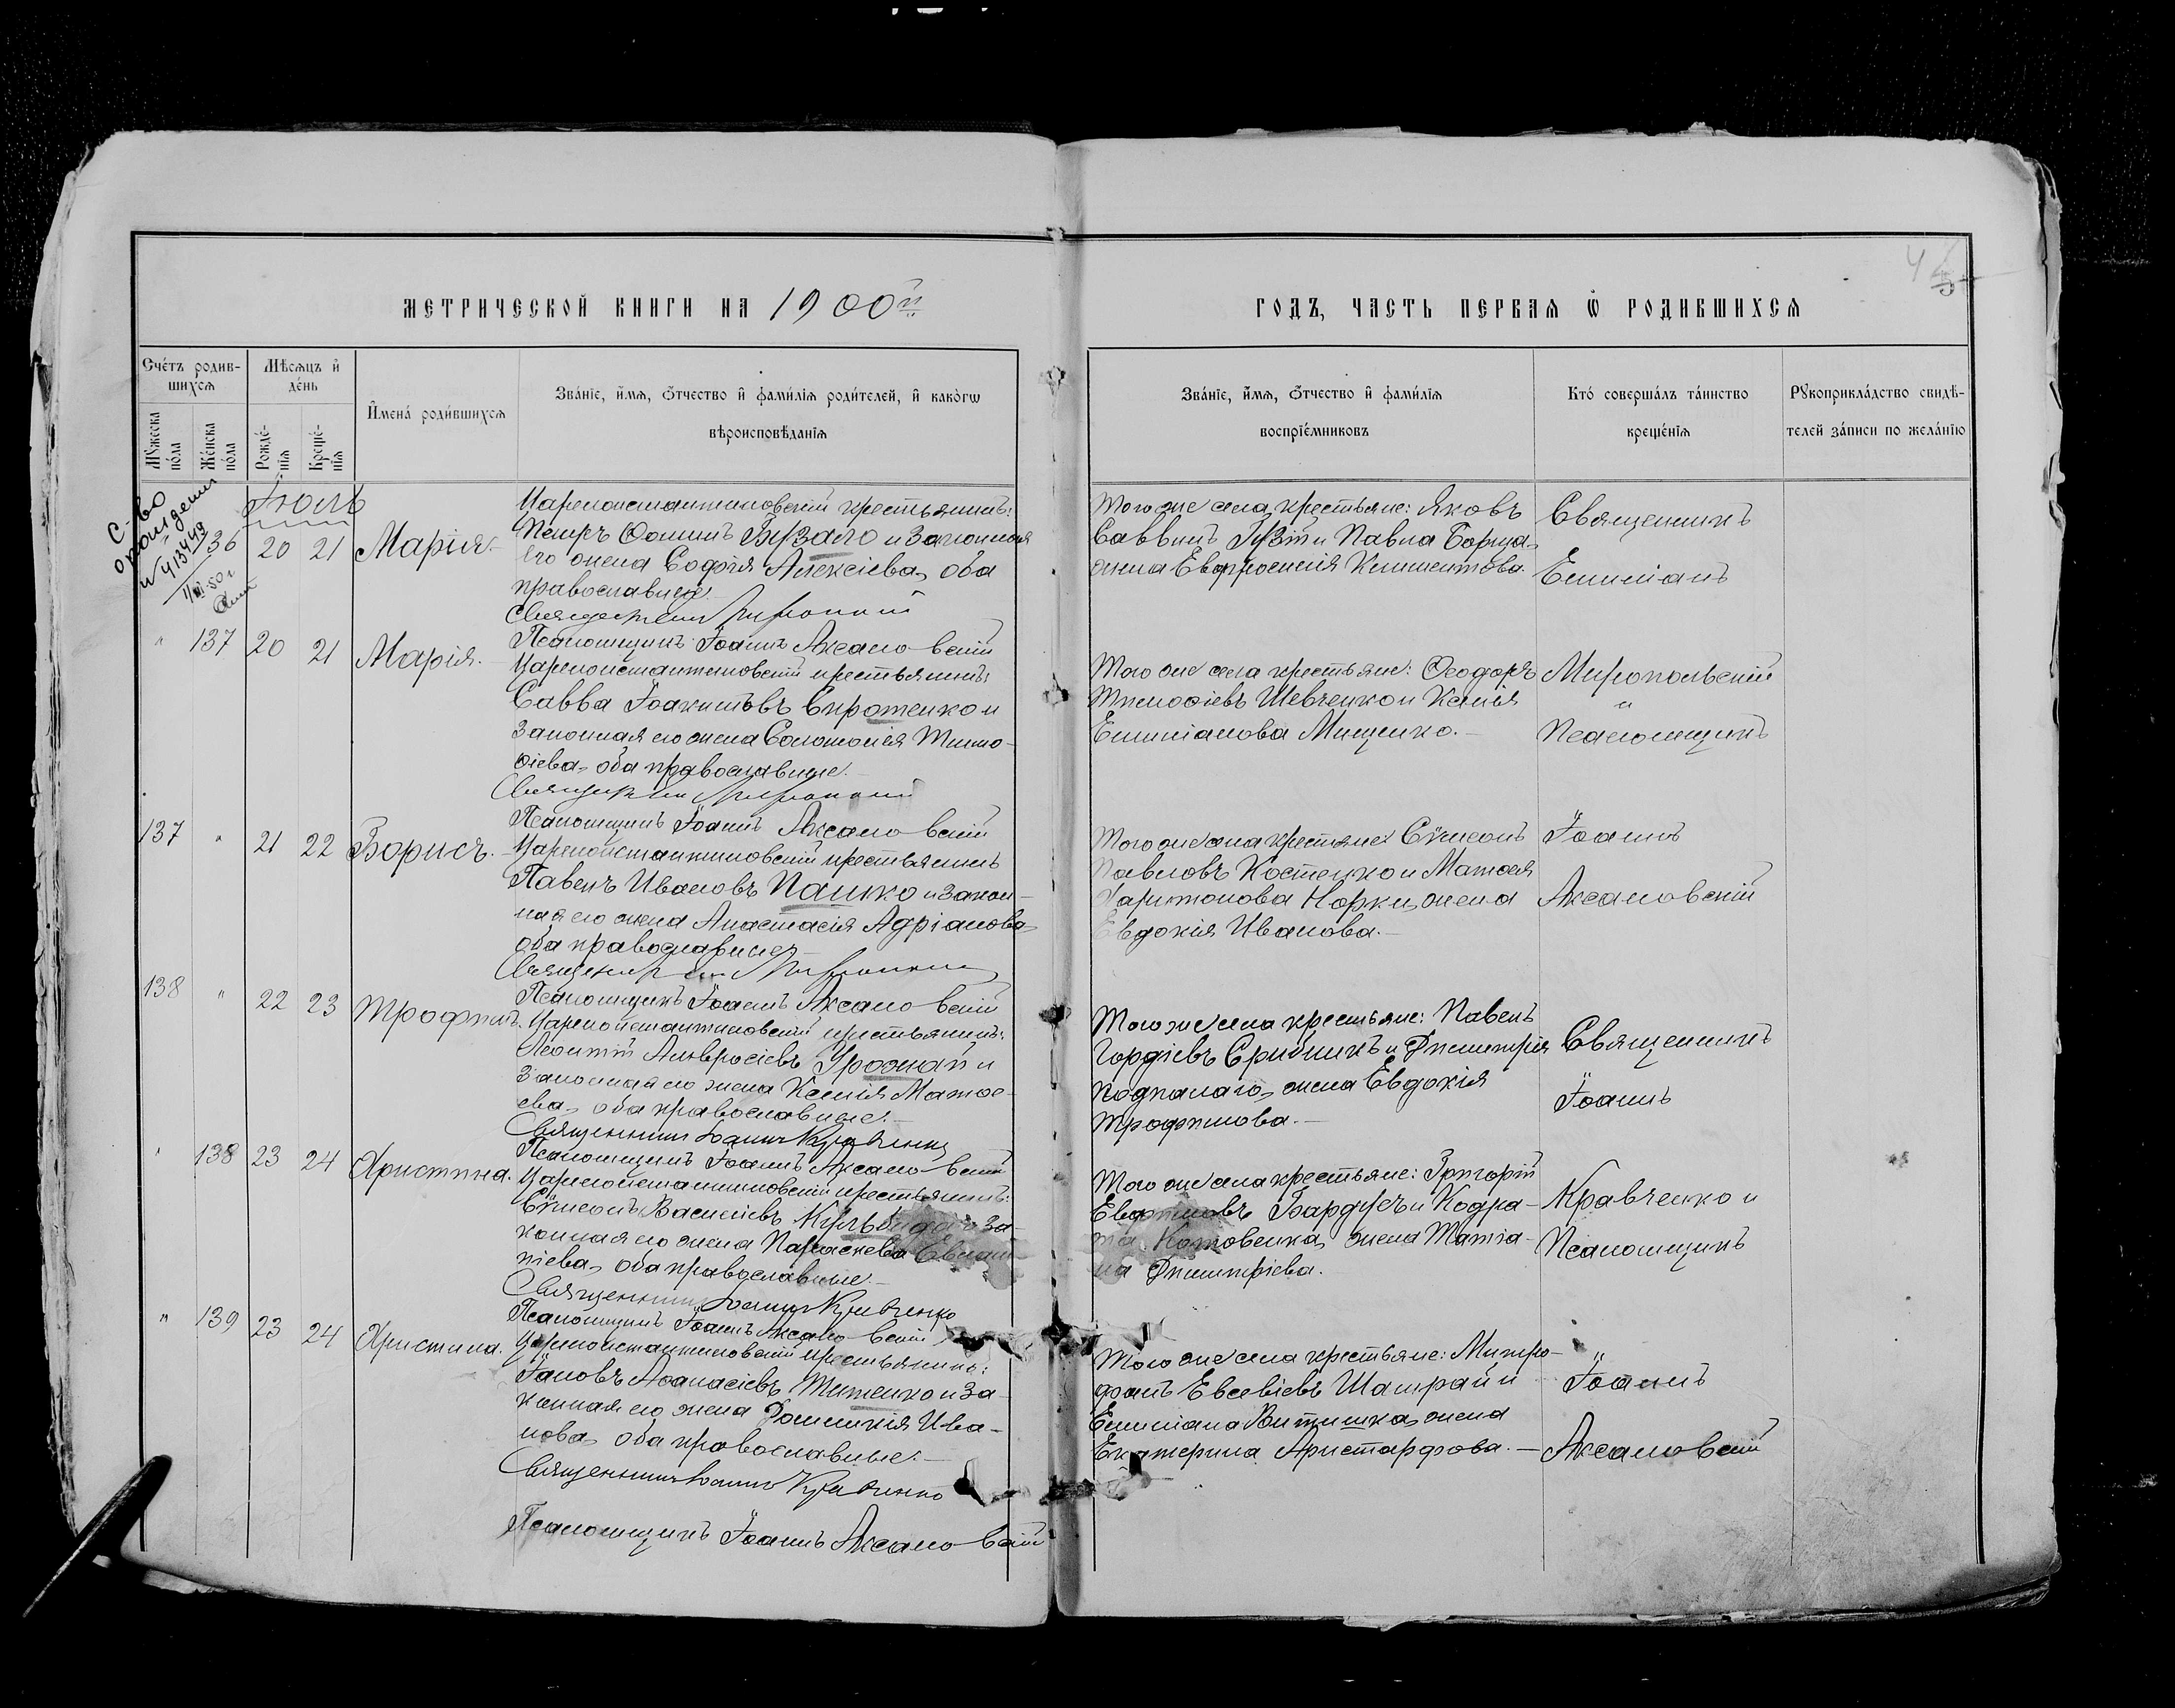 45
МЕТРИЧЕСКОЙ КНИГИ НА 1900й
ГОДЪ, ЧАСТЬ ПЕРВАЯ Ѡ РОДИВШИХСѦ
Сче́тъ родив-
шихсѧ
Мѣ́сѧцъ и҆
де́нь
Мꙋ́жеска
по́ла
Же́нска
по́ла
Рожде́-
нїѧ
Креще́-
нїѧ
И҆мена̀ роди́вшихсѧ
Зва́нїе, и҆́мѧ, ѻ҆́тчество и҆ фами́лїѧ роди́телей, и҆ како́гѡ
вѣроисповѣ́данїѧ
Зва́нїе, и҆́мѧ, ѻ҆́тчество и҆ фами́лїѧ
воспрїе́мниковъ
Кто́ соверша́лъ та́инство
креще́нїѧ
Рꙋкоприкла́дство свидѣ́-
телей за́писи по жела́нїю
С-во
о рождении
№ 413449
Іюль
136 20 21 Марія.
Цареконстантиновскій крестьянинъ:
Петръ Ѳоминъ Бузало и законная
его жена Софія Алексіева, оба
православные
Священникъ
Псаломщикъ Іоаннъ Аксановскій
Того же села крестьяне: Яковъ
Саввинъ и Павла Борща,
жена Евфросинія Климентова.
Священникъ
Емиліанъ
" 137 20 21 Марія.
Цареконстантиновскій крестьянинъ:
Савва Іоакимовъ Сиротенко и
законная его жена Соломонія Тимо-
ѳіева, оба православные.
Священникъ
Псаломщикъ Іоаннъ Аксановскій
Того же села крестьяне: Ѳеодоръ
Тимоѳіевъ Шевченко и Ксенія
Емиліанова Мищенко.
Миропольскій
и
Псаломщикъ
137 " 21 22 Борисъ.
Цареконстантиновскій крестьянинъ
Павелъ Ивановъ Пашко и закон-
ная его жена Анастасія Адріанова,
оба православные
Священникъ
Псаломщикъ Іоаннъ Аксановскій
Того же села крестьяне Сѵмеонъ
Павловъ Костенко и Матѳея
Харитонова Норки, жена
Евдокія Иванова.
Іоаннъ
Аксановскій
138 " 22 23 Трофимъ.
Цареконстантиновскій крестьянинъ:
Леонтій Амвросіевъ Урожай и
законная его жена Ксенія Матѳе-
ева, оба православные.
Священникъ Іоаннъ Кравченко
Псаломщикъ Іоаннъ Аксановскій
Того же села крестьяне: Павелъ
Гордіевъ Срибникъ и Димитрія
Подпалаго, жена Евдокія
Трофимова.
Священникъ
Іоаннъ
" 138 23 24 Христина.
Цареконстантиновскій крестьянинъ:
Сѵмеонъ Василіевъ и за-
конная его жена Параскева Евлам-
піева, оба православные.
Священникъ Іоаннъ Кравченко
Псаломщикъ Іоаннъ Аксановскій
Того же села крестьяне: Григорій
Бардусъ и Кодра-
та Котовенка, жена Татіа-
на Димитріева.
Кравченко и
Псаломщикъ
" 139 23 24 Христина.
Цареконстантиновскій крестьянинъ:
Іаковъ Аѳанасіевъ Титенко и за-
конная его жена Домникія Ива-
нова, оба православные.
Священникъ Іоаннъ Кравченко
Псаломщикъ Іоаннъ Аксановскій
Того же села крестьяне: Митро-
фанъ Евсевіевъ Шамрай и
Емиліана Витишка, жена
Екатерина Аристархова.
Іоаннъ
Аксановскій